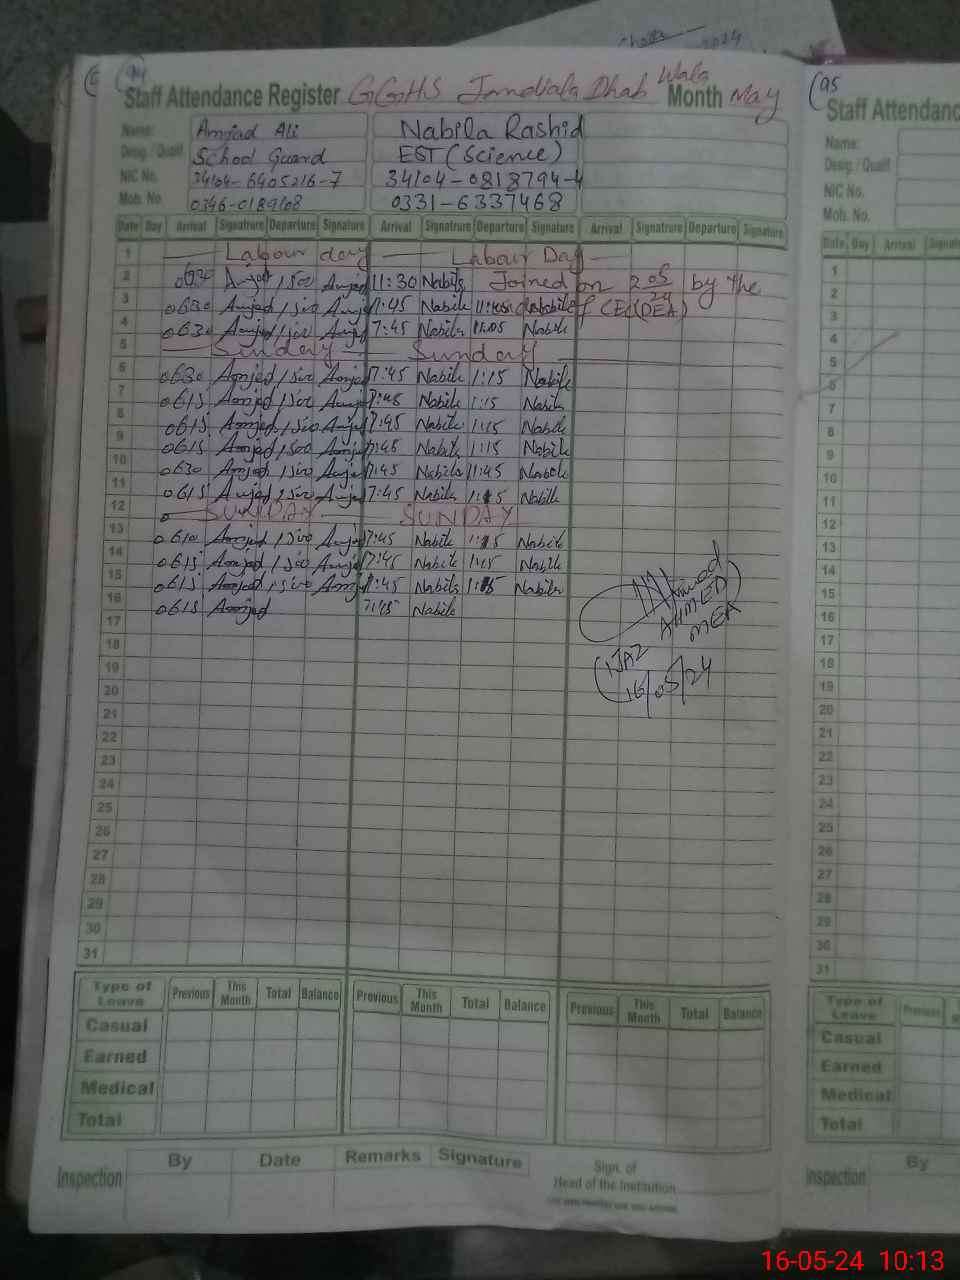 94
Staff Attendance Register GGHS Jandiala Dhab Wala Month May
Name: Amjad Ali Nabila Rashid
Desig./Qualif. School Guard EST (Science)
NIC No. 34104-6405216-7 34104-0818794-4
Mob. No. 0346-0189108 0331-6337468
Date Day Arrival Signature Departure Signature Arrival Signature Departure Signature Arrival Signature Departure Signature
1 Labour day Labour Day
2 0630 Amjad 1500 Amjad 11:30 Nabila Joined on 2 05 24 by the
3 0630 Amjad 1500 Amjad 7:45 Nabila CEO(DEA)
4 0630 Amjad 1500 Amjad 7:45 Nabila 11:05 Nabila
5 Sunday Sunday
6 0630 Amjad 1500 Amjad 7:45 Nabila 1:15 Nabila
7 0615 Amjad 1500 Amjad 7:45 Nabila 1:15 Nabila
8 0615 Amjad 1500 Amjad 7:45 Nabila 1:15 Nabila
9 0615 Amjad 1500 Amjad 7:45 Nabila 1:15 Nabila
10 0630 Amjad 1500 Amjad 7:45 Nabila 11:45 Nabila
11 0615 Amjad 1500 Amjad 7:45 Nabila 1:15 Nabila
12 SUNDAY SUNDAY
13 0610 Amjad 1500 Amjad 7:45 Nabila 1:15 Nabila
14 0615 Amjad 1500 Amjad 7:45 Nabila 1:15 Nabila
15 0615 Amjad 1500 Amjad 7:45 Nabila 1:15 Nabila
16 0615 Amjad 7:45 Nabila
17
18
19
20
21
22
23
24
25
26
27
28
29
30
31
(IJAZ AHMED
MEA
16/05/24
Type of Leave Previous This Month Total Balance Previous This Month Total Balance Previous This Month Total Balance
Casual
Earned
Medical
Total
Inspection By Date Remarks Signature
Sign. of
Head of the Institution
95
Staff Attendanc
Name:
Desig./Qualif.
NIC No.
Mob. No.
Date Day Arrival
1
2
3
4
5
6
7
8
9
10
11
12
13
14
15
16
17
18
19
20
21
22
23
24
25
26
27
28
29
30
31
Type of Leave Previous
Casual
Earned
Medical
Total
Inspection By
16-05-24 10:13